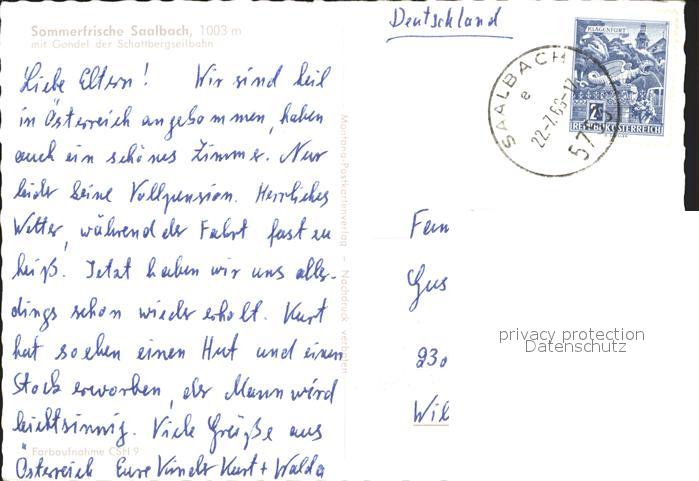 Sommerfrische Saalbach, 1003 m
mit Gondel der Schattbergseilbahn
Liebe Eltern! Wir sind heil
in Österreich angekommen, haben
auch ein schönes Zimmer. Nur
leider keine Vollpension. Herrliches
Wetter, während der Fahrt fast zu
heiß. Jetzt haben wir uns aller-
dings schon wieder erholt. Kurt
hat soeben einen Hut und einen
Stock erworben, der Mann wird
leichtsinnig. Viele Grüße aus
Österreich Eure Kinder Kurt + Walda
Farbaufnahme CSH 9
Montana-Postkartenverlag — Nachdruck verboten
Deutschland
SAALBACH
e
22.-7.68-17
57
KLAGENFURT
2 S
REPUBLIK ÖSTERREICH
Fam
Gus
230
Wil
privacy protection
Datenschutz